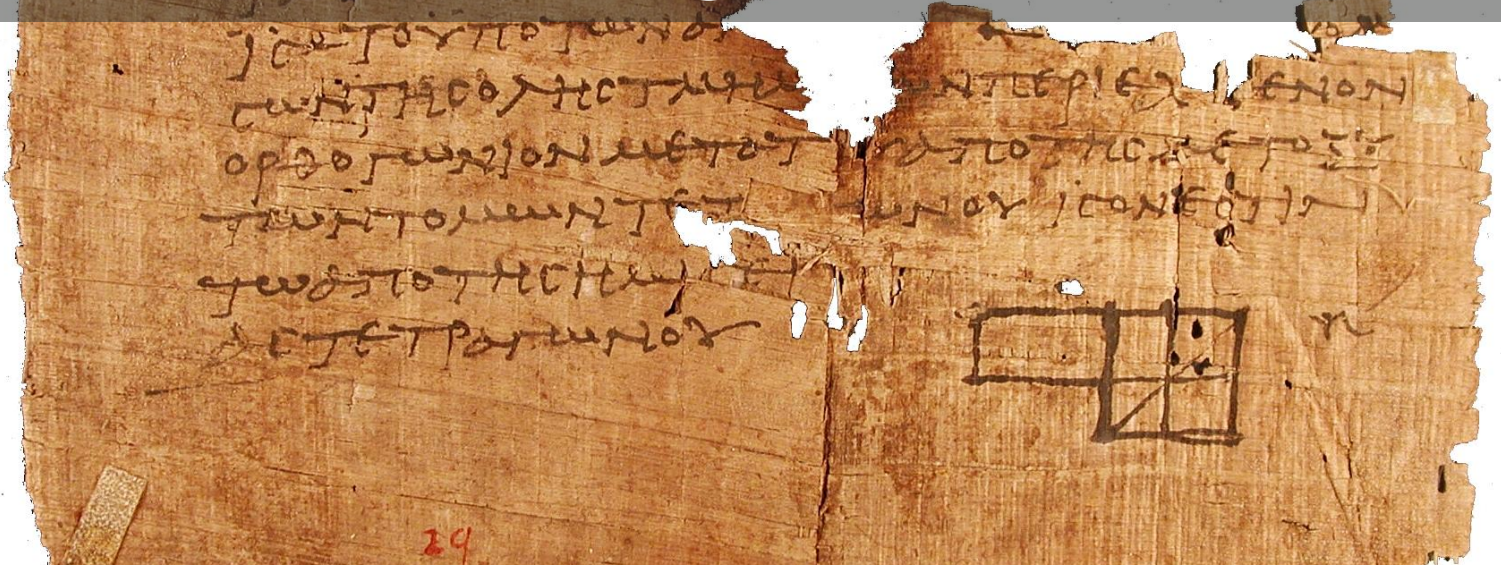 ΤΟΥΠΟΤΩΝΑ
ϹΩΝΤΗϹΟΛΗϹΤΜΗΜ ΩΝΠΕΡΙΕΧ ΜΕΝΟΝ
ΟΡΘΟΓΩΝΙΟΝΜΕΤΟΤ ΑΠΟΤΗϹΜΕΤΟΞΥ
ΤΩΝΤΟΜΩΝΤΕΤ ΩΝΟΥ ΙϹΟΝΕϹΤΙΝ
ΤΩΑΠΟΤΗϹΗΜΙ ΕΙ
ΑϹΤΕΤΡΑΓΩΝΟΥ
29